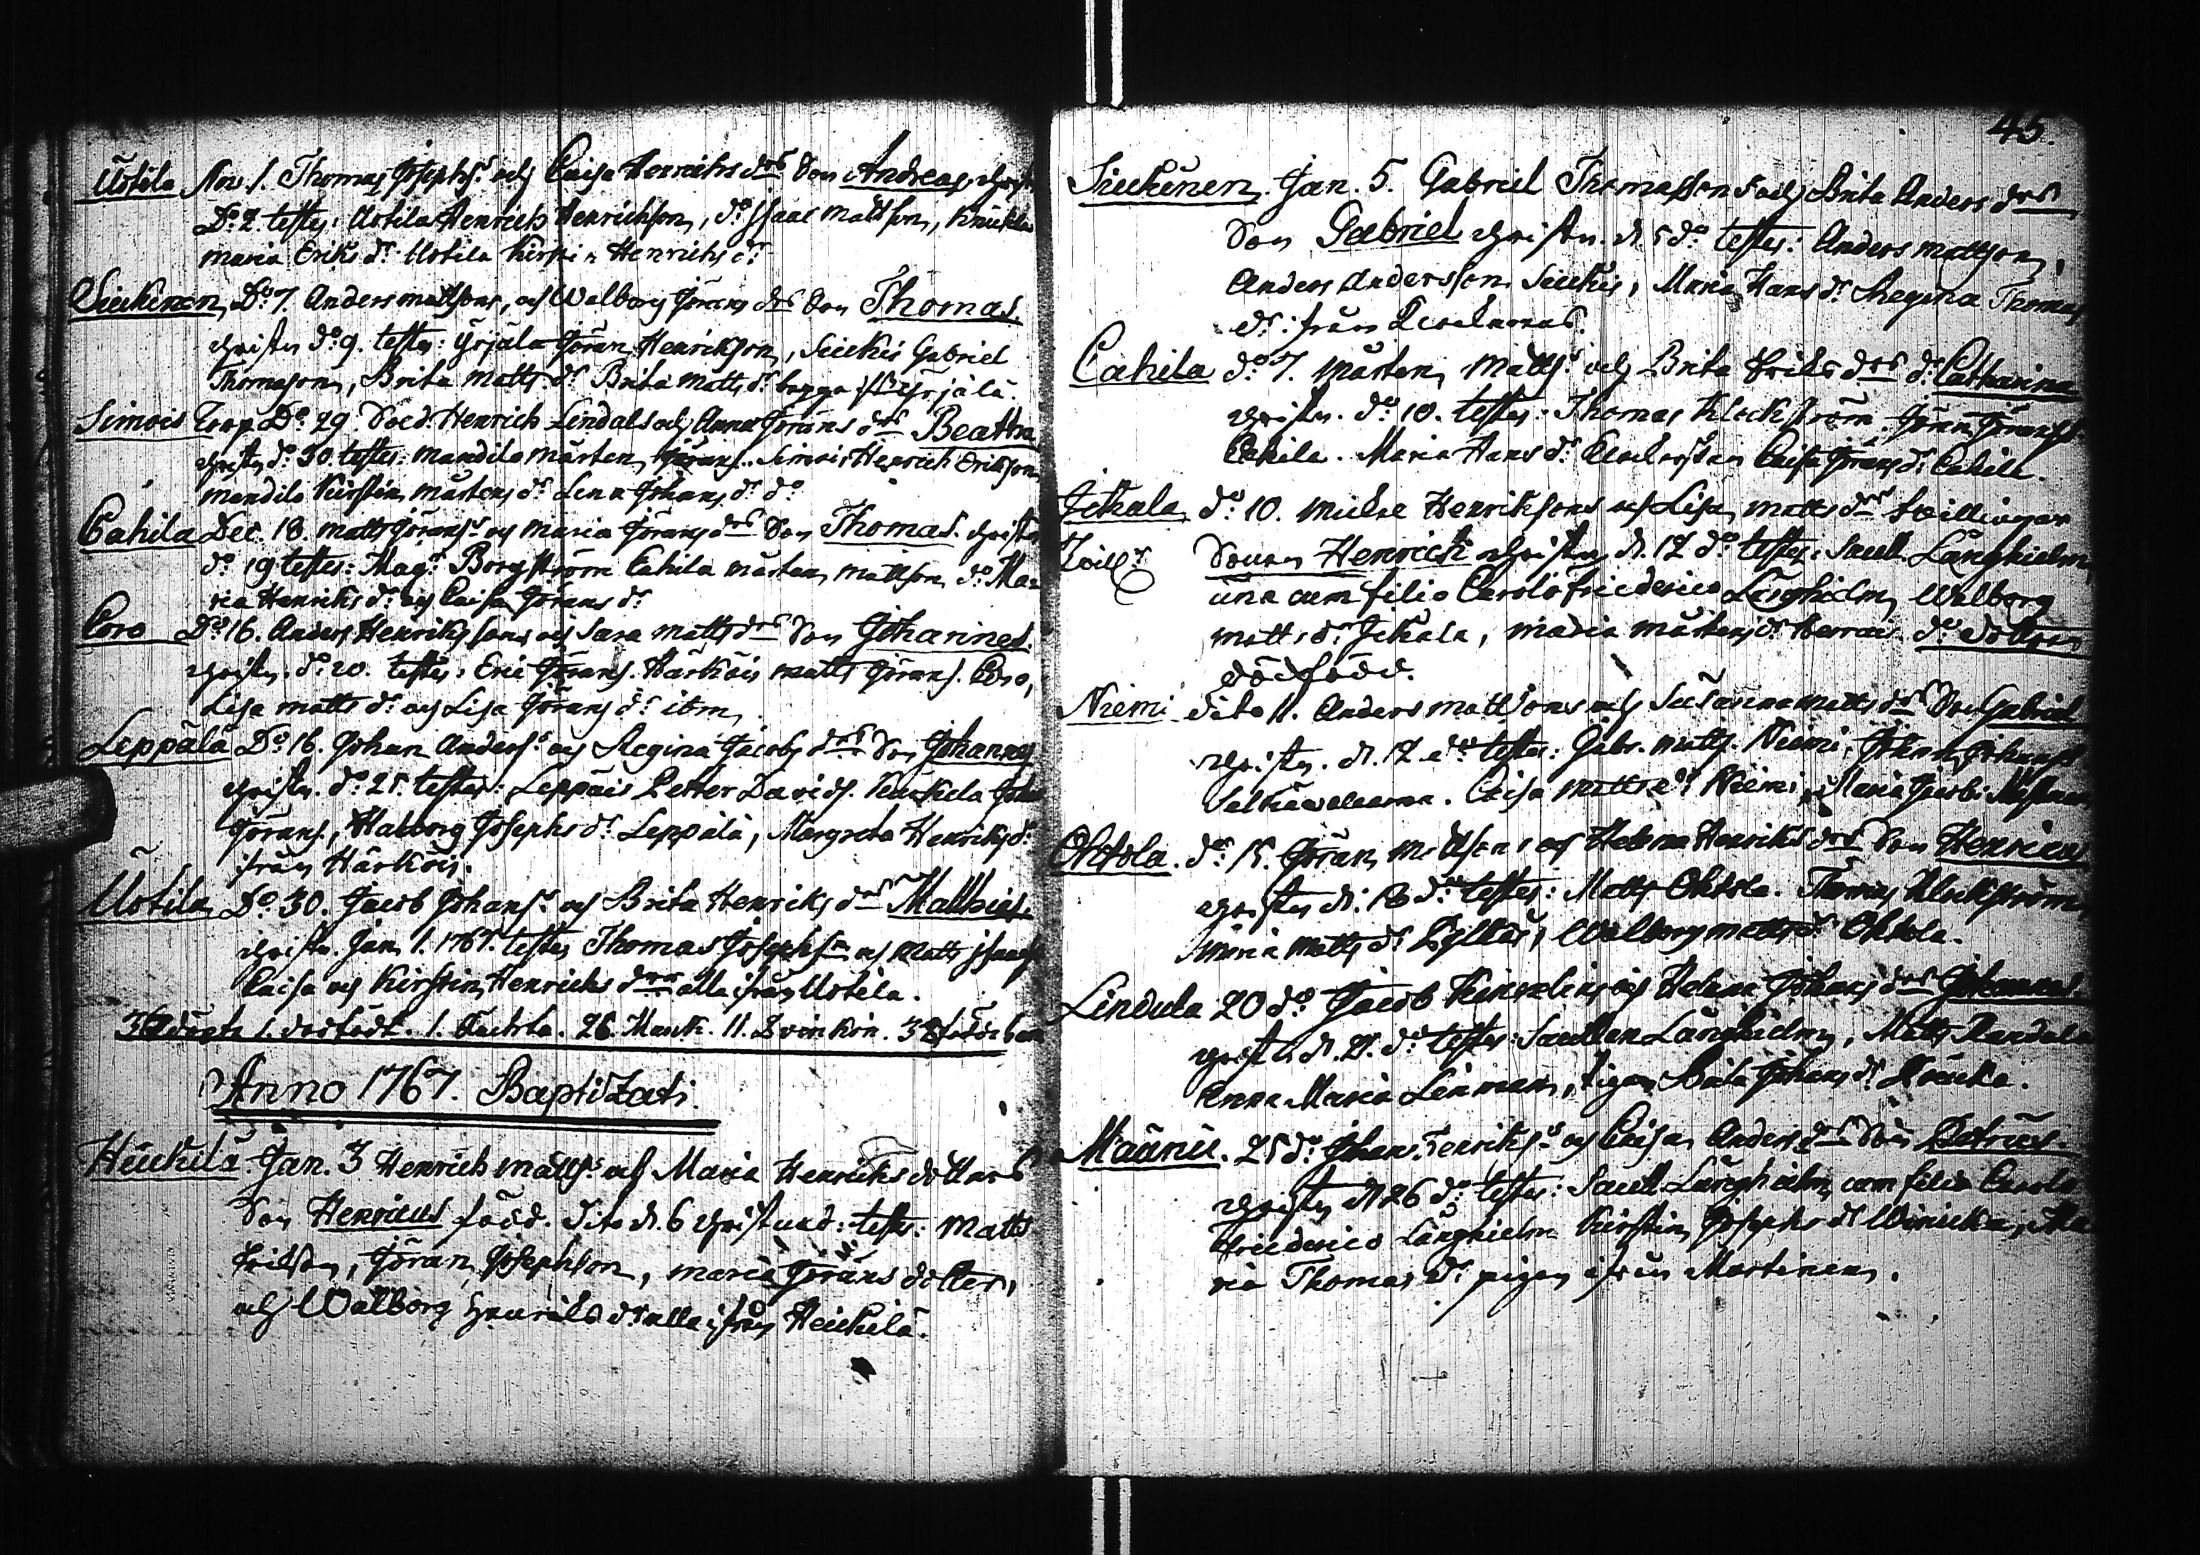 Uotila Nov. 1. Thomas Josephs. och Caisa Henrichs drs Son Andreas christn
Do 2. testes: Uotila Henrich Henrichson, do Isaac Mattson, Knuutila
Maria Eriks dr Uotila Kirstin Henrichs dr
Siukinen Do 7. Anders Mattsons, och Walborg Jörans drs Son Thomas
christn do 9. testes: Yrjälä Jöran Henrikson, Siukis Gabriel
Thomason, Brita Matts dr Brita Matts dr begge ifr. Yrjälä.
Simois Torp Do 29 Sold. Henrich Lindals och Anna Jörans drs Beatha
christn do 30. testes: Mandila Mårten Jörans. Simois Henrich Erikson
Mandila Kirstin Mårtens dr Lena Johans dr do
Cahila Dec. 18. Matts Jörans. och Maria Jörans drs Son Thomas. christn
do 19 testes: Mag. Borgström Cahila Mårten Mattson do Ma-
ria Henriks dr och Caisa Jörans dr
Coro Do 16. Anders Henriksons och Sara Matts drs Son Johannes.
christn. do 20. testes: Eric Jörans. Härköis Matts Jörans. Coro,
Lisa Matts dr och Lisa Jörans dr item
Leppälä Do 16. Johan Anders. och Regina Jacobs drs Son Johannes
christn. do 25. testes: Leppäis Petter Davids.
Jörans, Walborg Josephs dr Leppälä, Margreta Henriks dr
ifrån Härköis.
Uotila Do 30. Jacob Johans. och Brita Henriks drs Matthias.
christn. Jan 1. 1767. testes Thomas Josephson och Matts Isaacs
Caisa och Kirstin Henrichs drar alla ifrån Uotila.
1. dödfödt. 1. 26 Mank. 11. Qvinkön. 38 födde barn
Anno 1767. Baptizati.
Heickilä. Jan. 3 Henrich Matts. och Maria Henrichs dotters
Son Henricus född. dito d. 6 christnad: testes: Matts
Erikson, Jöran Josephson, Maria Jörans dotter,
och Walborg Henriks dr alla ifrån Heickilä.
45.
Siukinen. Jan. 5. Gabriel Thomasson och Brita Anders drs
Son Gabriel christn. d. 5 do testes: Anders Mattson,
Anders Andersson Siukis, Maria Hans dr Regina Thomas
dr: från
Cahila do 7. Mårten Matts. och Brita Eriks drs dr Catharina
christn. do 10. testes: Thomas Klockström. Jöran Jörans
Cahila. Maria Hans dr Caisa Jörans dr Cahila.
Jekala do 10. Mickel Henriksons och Lisa Matts drs tvillingar
Tvill. Sonen Henrich christn d. 12 do testes: Saull. Långhielm
una cum filio Carolo Friederico Långhielm, Walborg
Matts dr Jekala, Maria Mårtens dr do dotter
dödfödd.
Niemi dito 11. Anders Mattsons och Susanna Matts drs Son Gabriel
christn. d. 12 do testes: Gabr. Matts. Niemi, Johan Johans
Caisa Matts dr Niemi, Maria Jacobs
Ohtola. do 15. Jöran Mattsons och Helena Henriks drs Son Henricus
christn d. 18 do testes: Matts Ohtola. Thomas Klockström
Maria Matts dr Walborg Matts dr Ohtola.
Lindula 20 do Jacob och Helena Johans drs Johannes.
christn d. 21. do testes: Saullen Långhielm, Matts
Anna Maria Lenman, pigan Brita Johans dr
Määnu. 25 do Johans Henriks. och Caisa Anders drs Son Petrus.
christn d. 26 do testes: Saull. Långhielm cum filio Carolo
Friederico Långhielm Kirstin Josephs dr Ma-
ria Thomas dr pigan ifrån Martinen.